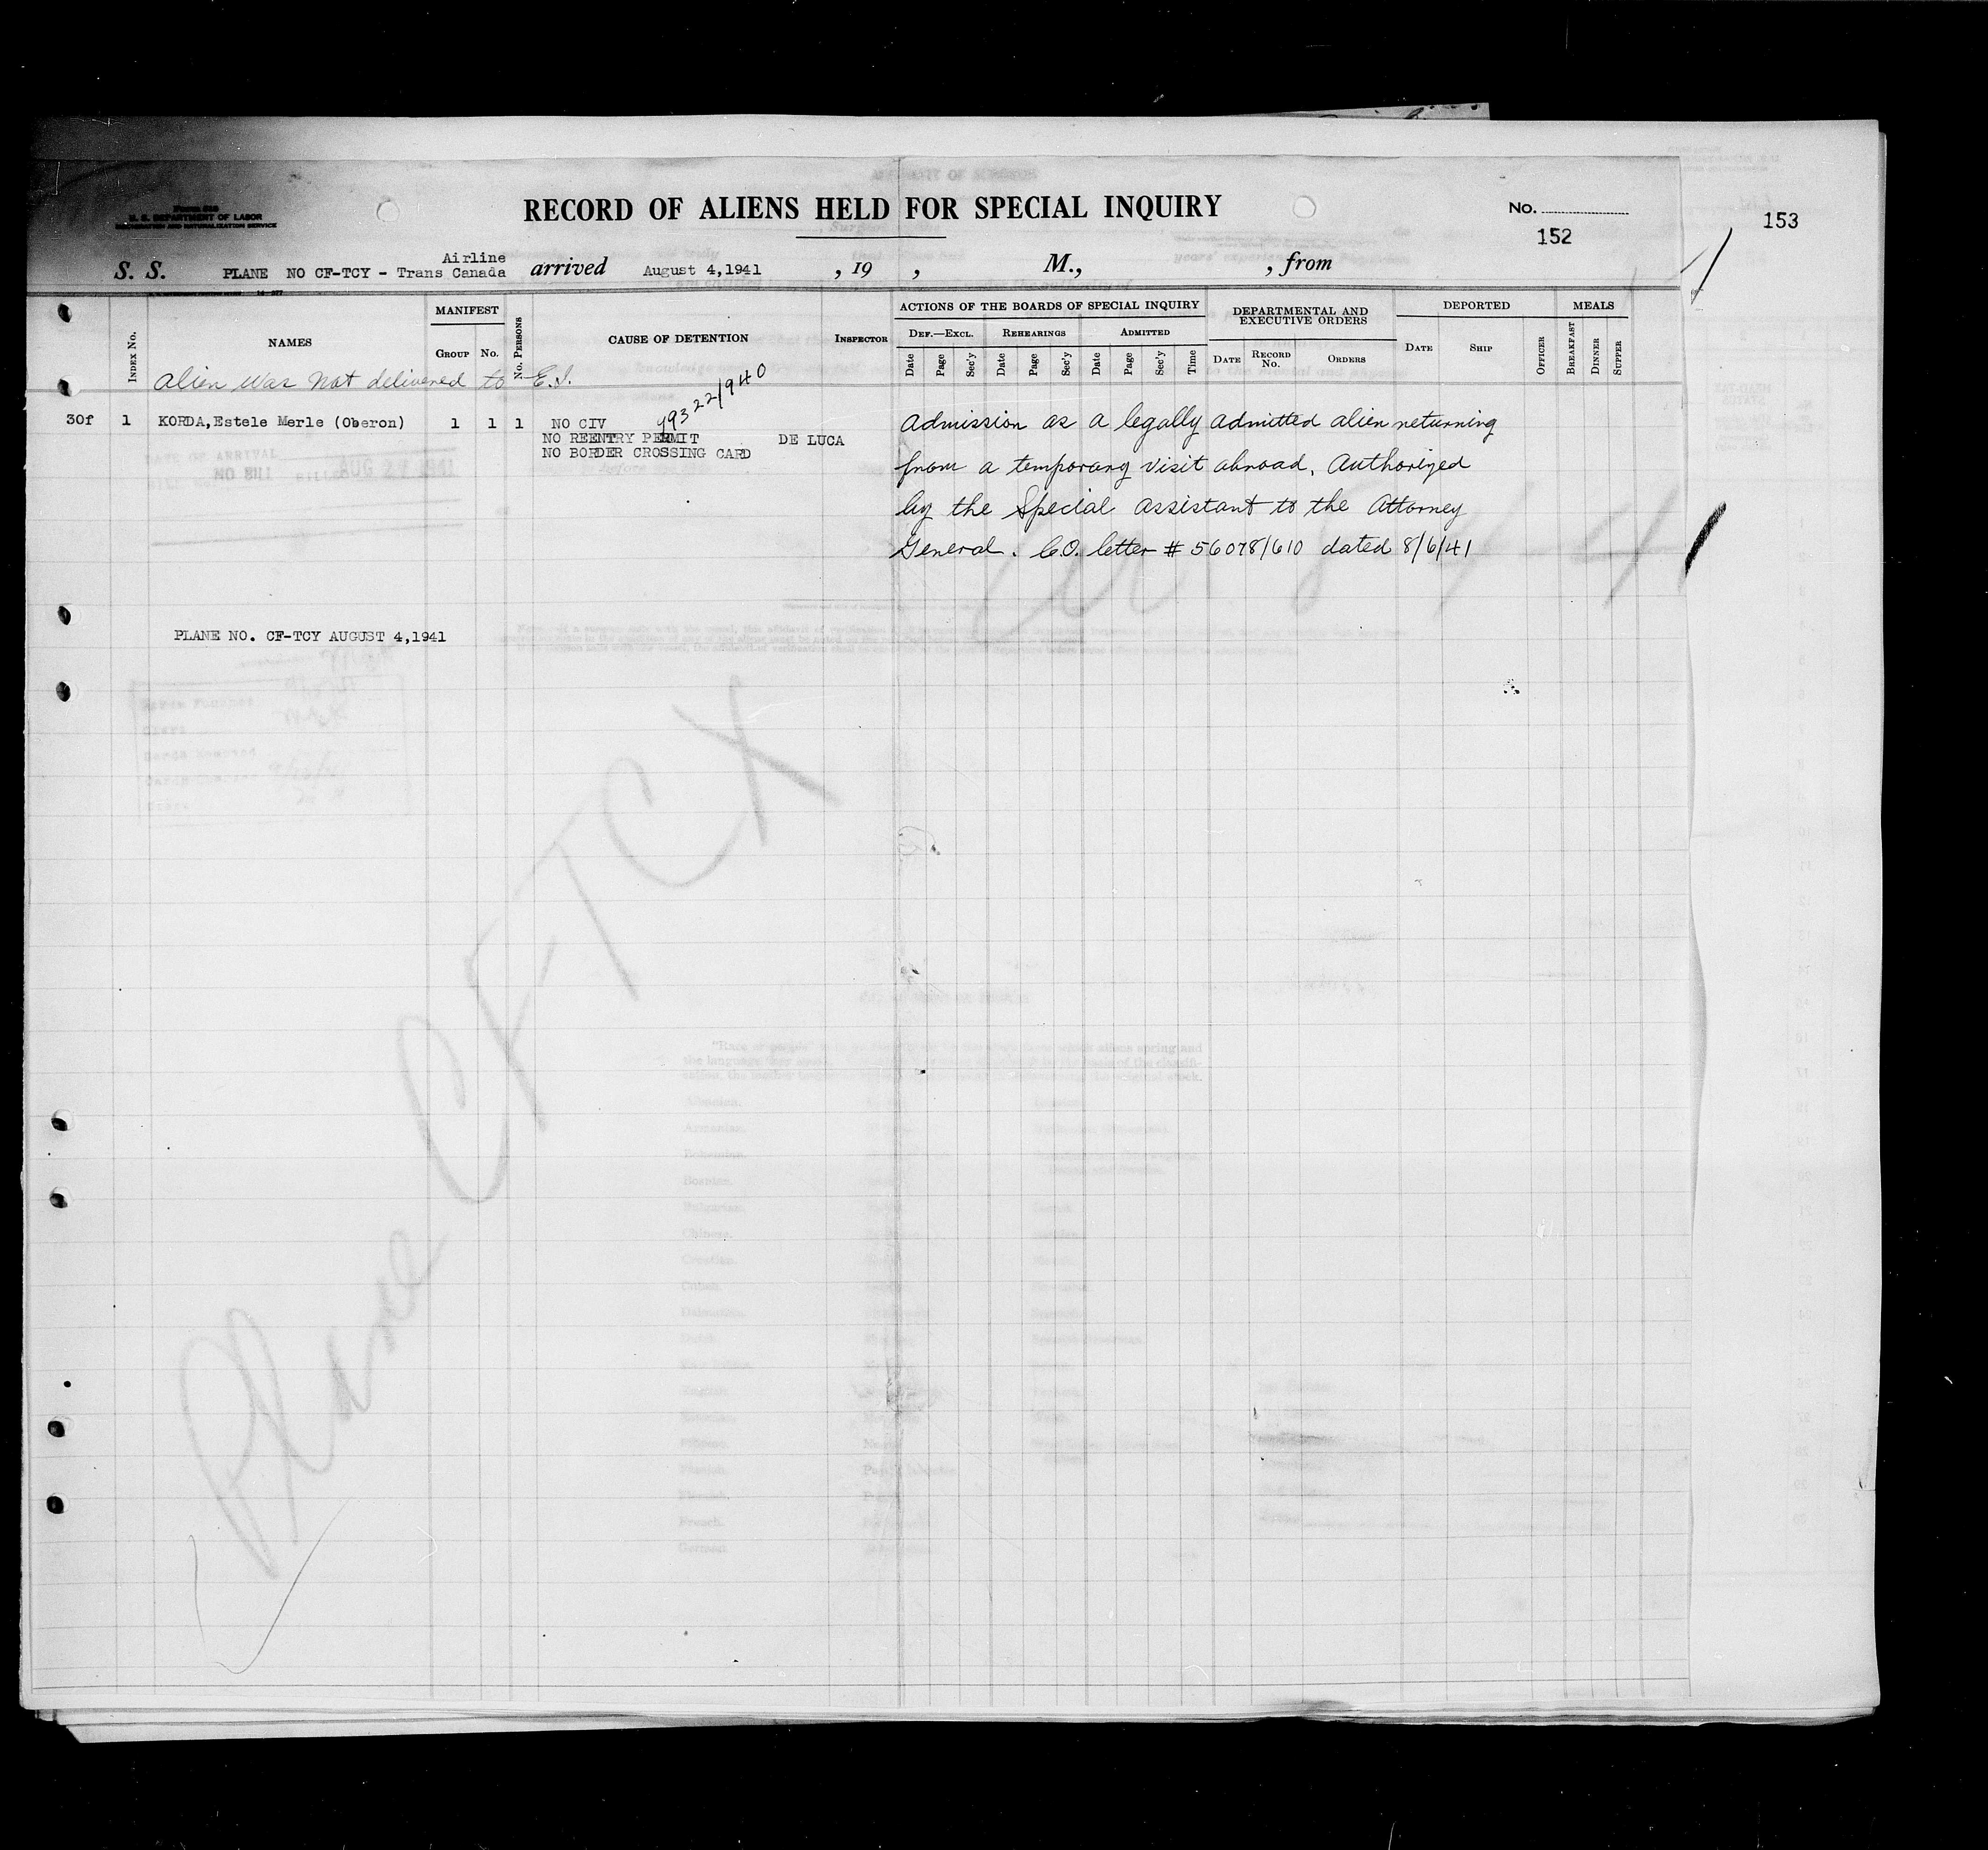 Form 630
U. S. DEPARTMENT OF LABOR
IMMIGRATION AND NATURALIZATION SERVICE
RECORD OF ALIENS HELD FOR SPECIAL INQUIRY
No.
152
153
S. S. PLANE NO CF-TCY - Trans Canada Airline arrived August 4,1941 , 19 , M., , from
INDEX No.
NAMES
MANIFEST
GROUP No.
No. PERSONS
CAUSE OF DETENTION
INSPECTOR
ACTIONS OF THE BOARDS OF SPECIAL INQUIRY
DEF.—EXCL. REHEARINGS ADMITTED
Date Page Sec'y Date Page Sec'y Date Page Sec'y Time
DEPARTMENTAL AND EXECUTIVE ORDERS
DATE RECORD No. ORDERS
DEPORTED
DATE SHIP OFFICER
MEALS
BREAKFAST DINNER SUPPER
Alien was not delivered to E.I.
30f 1 KORDA,Estele Merle (Oberon) 1 1 1 NO CIV
99322/940
NO REENTRY PERMIT
NO BORDER CROSSING CARD
DE LUCA
Admission as a legally admitted alien returning
from a temporary visit abroad, Authorized
by the Special Assistant to the Attorney
General. C.O. letter # 56078/610 dated 8/6/41
NO BILL
AUG 27 1941
PLANE NO. CF-TCY AUGUST 4,1941
Plane CFTCX